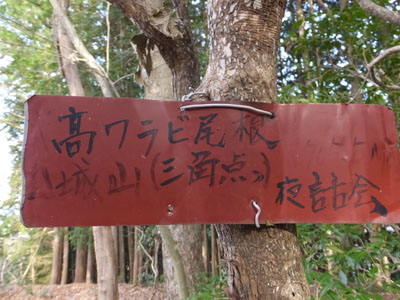 高ワラビ尾根
城山(三角点)
夜話会